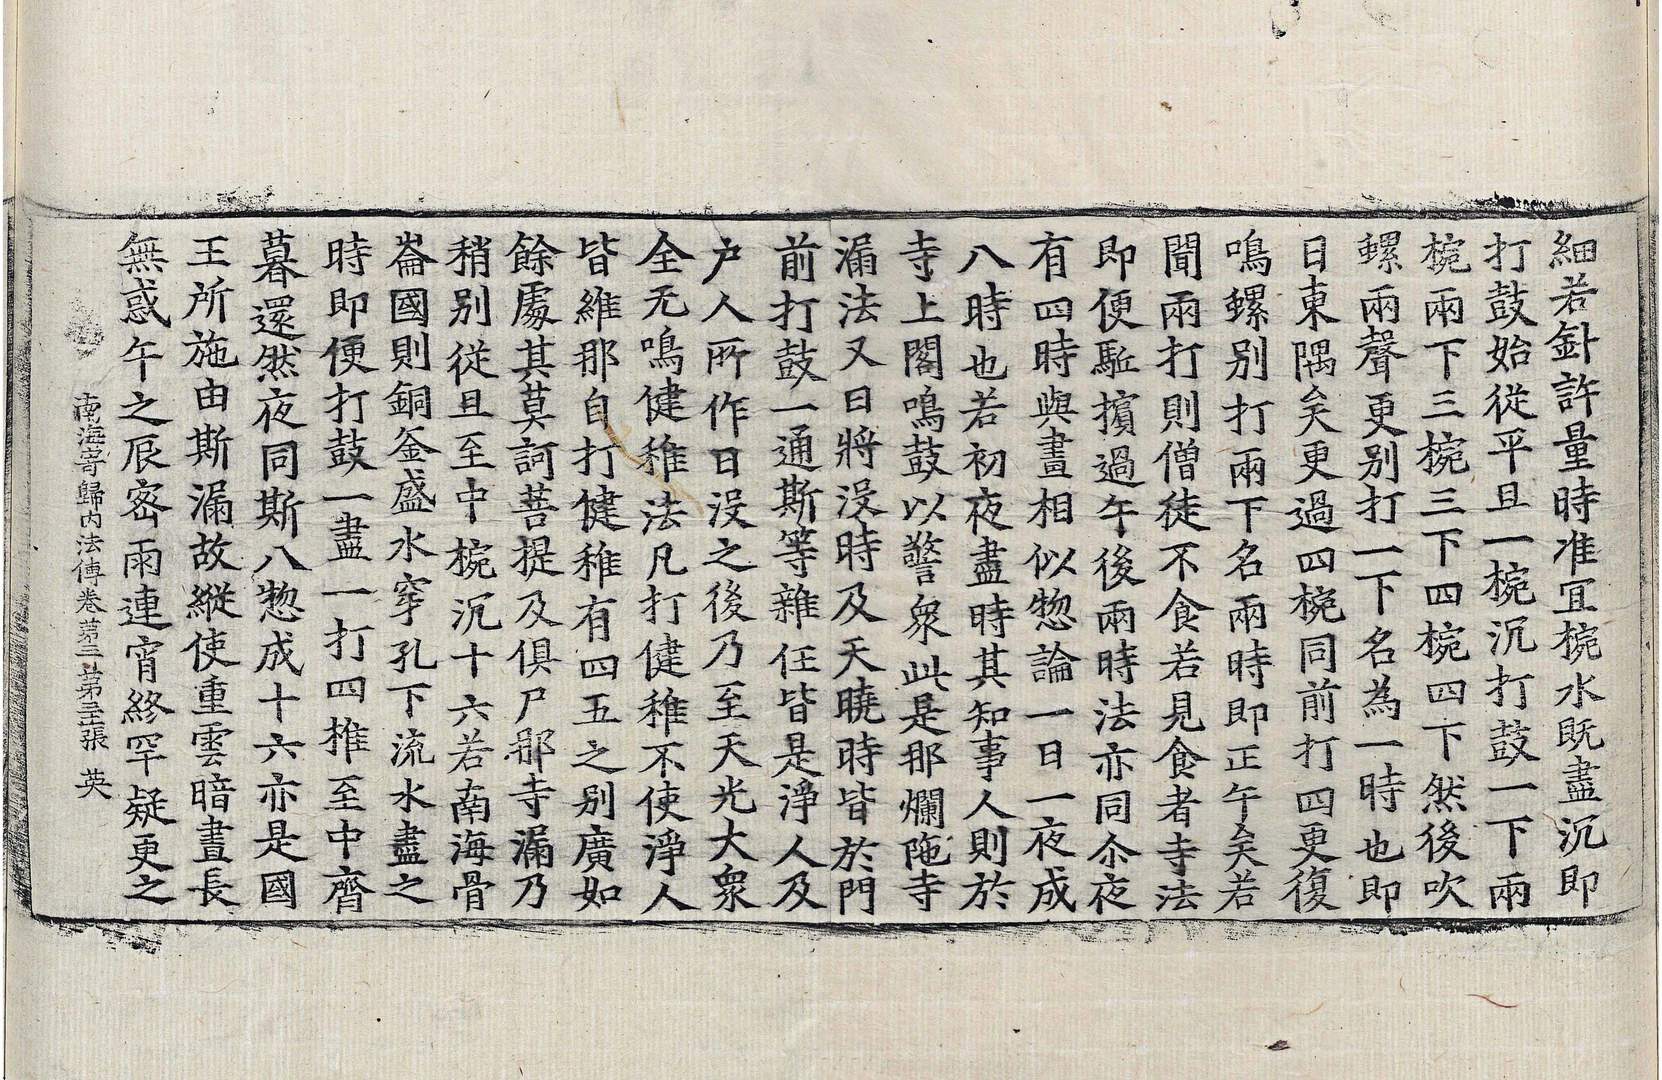 細若針許量時准冝椀水既盡沉即
打鼓始從平旦一椀沉打鼓一下兩
椀兩下三椀三下四椀四下然後吹
螺兩聲更别打一下名為一時也即
日東隅矣更過四椀同前打四更復
鳴螺别打兩下名兩時即正午矣若
聞兩打則僧徒不食若見食者寺法
即便駈擯過午後兩時法亦同尒夜
有四時與晝相似惣論一日一夜成
八時也若初夜盡時其知事人則於
寺上閣鳴鼓以警衆此是那爛陁寺
漏法又日將没時及天曉時皆於門
前打鼓一通斯等雜任皆是淨人及
户人所作日没之後乃至天光大衆
全无鳴健稚法凡打健稚不使淨人
皆維那自打健稚有四五之别廣如
餘處其莫訶菩提及俱尸那寺漏乃
稍别從旦至中椀沉十六若南海骨
崙國則銅釜盛水穿孔下流水盡之
時即便打鼓一盡一打四椎至中齊
暮還然夜同斯八惣成十六亦是國
王所施由斯漏故縱使重雲暗晝長
無惑午之辰密雨連宵終罕疑更之
南海寄歸内法傳卷苐三 第三張 英